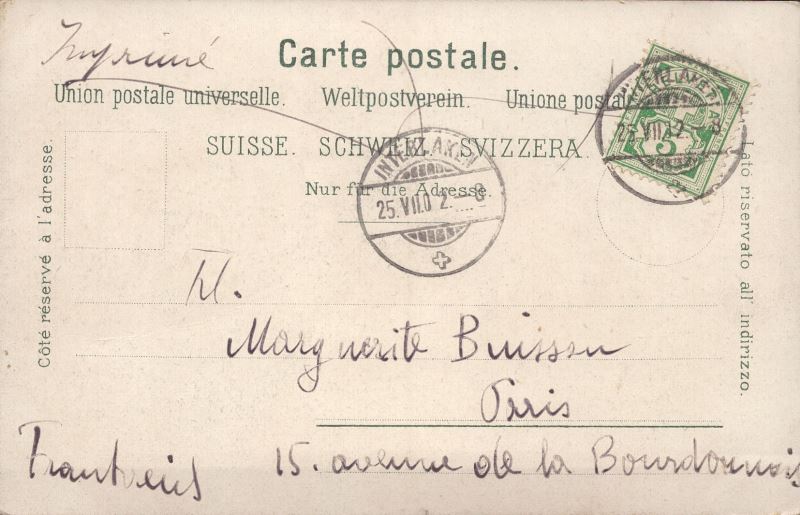 Imprimé
Carte postale.
Union postale universelle. Weltpostverein. Unione postale
SUISSE. SCHWEIZ. SVIZZERA.
Nur für die Adresse.
Côté réservé à l'adresse.
Lato riservato all' indirizzo.
INTERLAKEN
25.VII.02.–8
INTERLAKEN
25.VII.02 – 8
5
Marguerite Buisson
Paris
15. avenue de la Bourdonnais